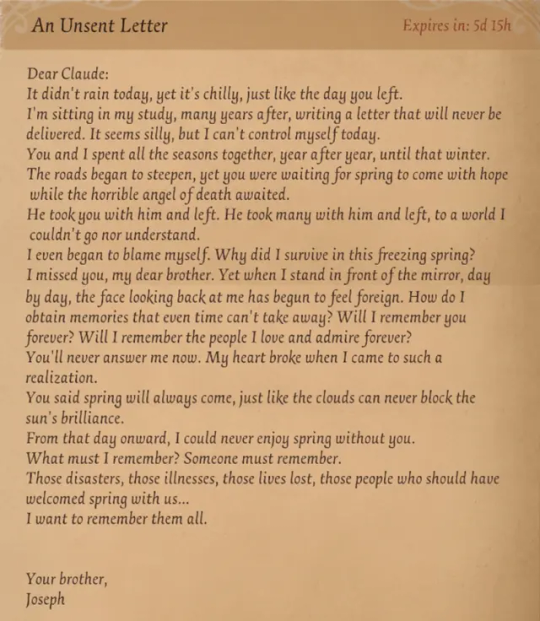 An Unsent Letter
Expires in: 5d 15h
Dear Claude:
It didn't rain today, yet it's chilly, just like the day you left.
I'm sitting in my study, many years after, writing a letter that will never be
delivered. It seems silly, but I can't control myself today.
You and I spent all the seasons together, year after year, until that winter.
The roads began to steepen, yet you were waiting for spring to come with hope
while the horrible angel of death awaited.
He took you with him and left. He took many with him and left, to a world I
couldn't go nor understand.
I even began to blame myself. Why did I survive in this freezing spring?
I missed you, my dear brother. Yet when I stand in front of the mirror, day
by day, the face looking back at me has begun to feel foreign. How do I
obtain memories that even time can't take away? Will I remember you
forever? Will I remember the people I love and admire forever?
You'll never answer me now. My heart broke when I came to such a
realization.
You said spring will always come, just like the clouds can never block the
sun's brilliance.
From that day onward, I could never enjoy spring without you.
What must I remember? Someone must remember.
Those disasters, those illnesses, those lives lost, those people who should have
welcomed spring with us...
I want to remember them all.
Your brother,
Joseph